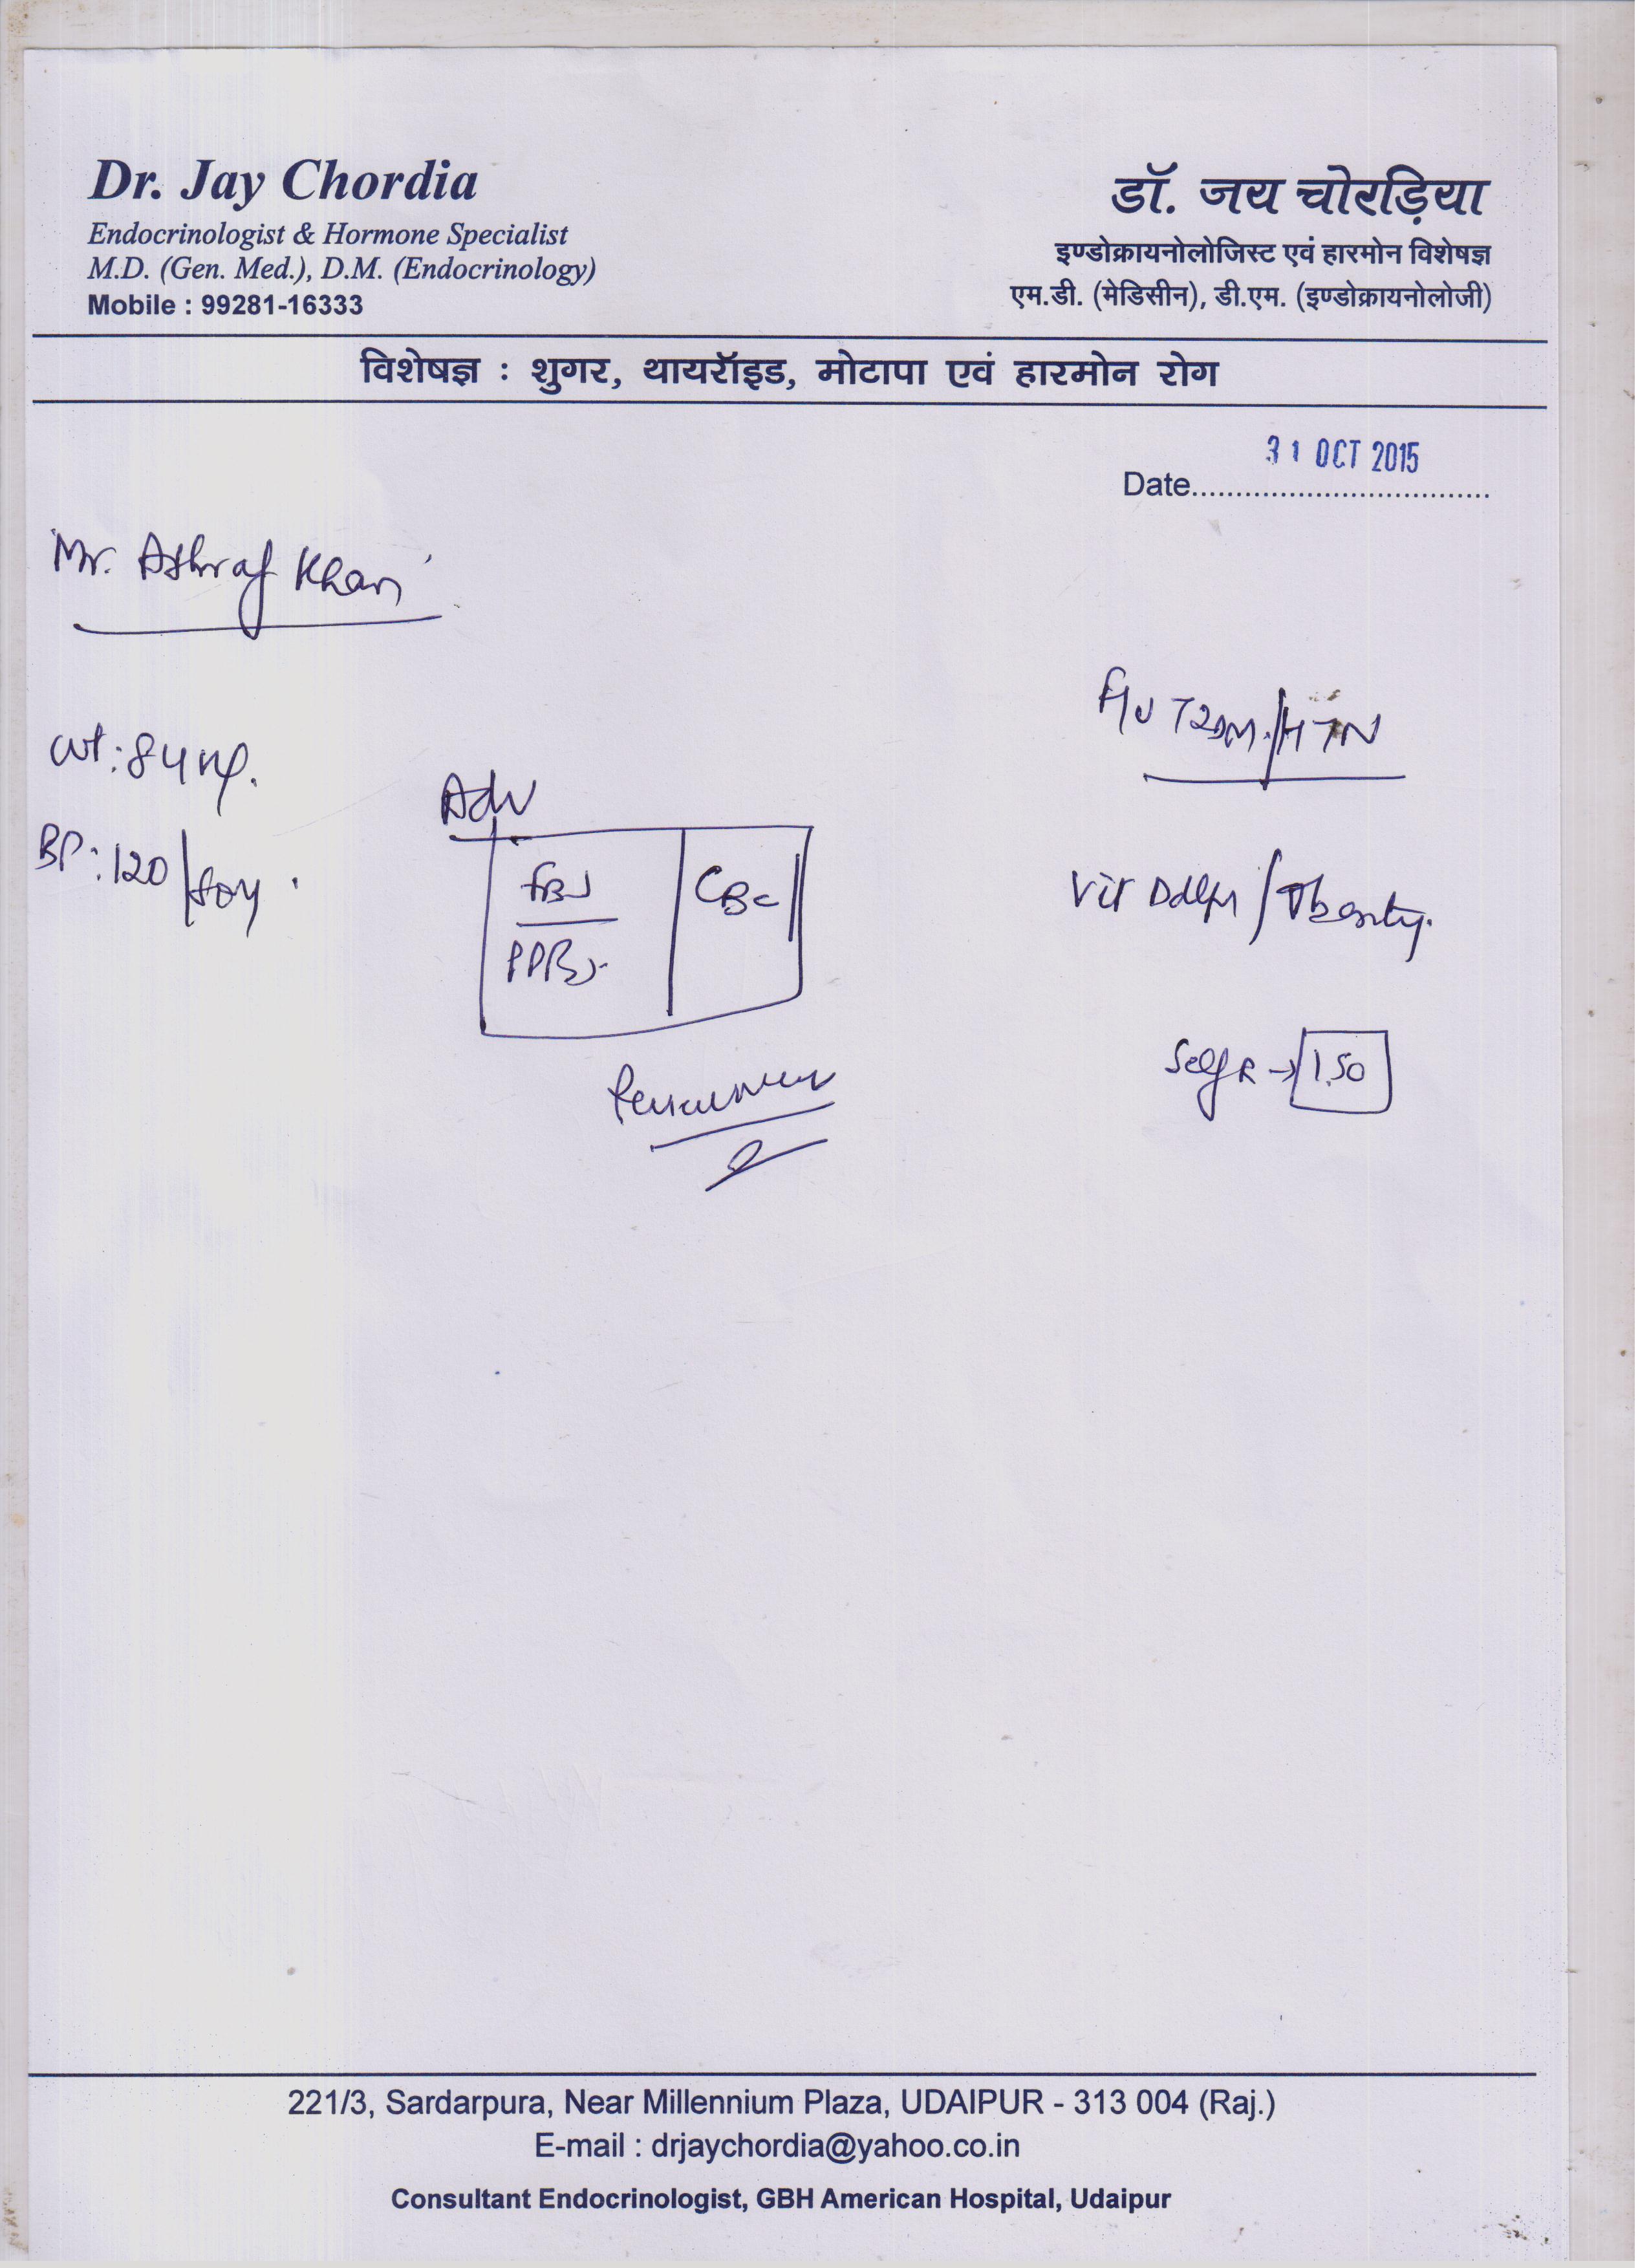 Dr. Jay Chordia
Endocrinologist & Hormone Specialist
M.D. (Gen. Med.), D.M. (Endocrinology)
Mobile : 99281-16333
डॉ. जय चोरड़िया
इण्डोक्रायनोलोजिस्ट एवं हारमोन विशेषज्ञ
एम.डी. (मेडिसीन), डी.एम. (इण्डोक्रायनोलोजी)
विशेषज्ञ : शुगर, थायरॉइड, मोटापा एवं हारमोन रोग
31 OCT 2015
Date
Mr. Ashraf Khan
F/U T2DM/HTN
wt: 84 kg.
Adv
BP: 120/80
FBS
CBC
PPBS
Vit D /Obesity.
→ 1.50
221/3, Sardarpura, Near Millennium Plaza, UDAIPUR - 313 004 (Raj.)
E-mail : drjaychordia@yahoo.co.in
Consultant Endocrinologist, GBH American Hospital, Udaipur